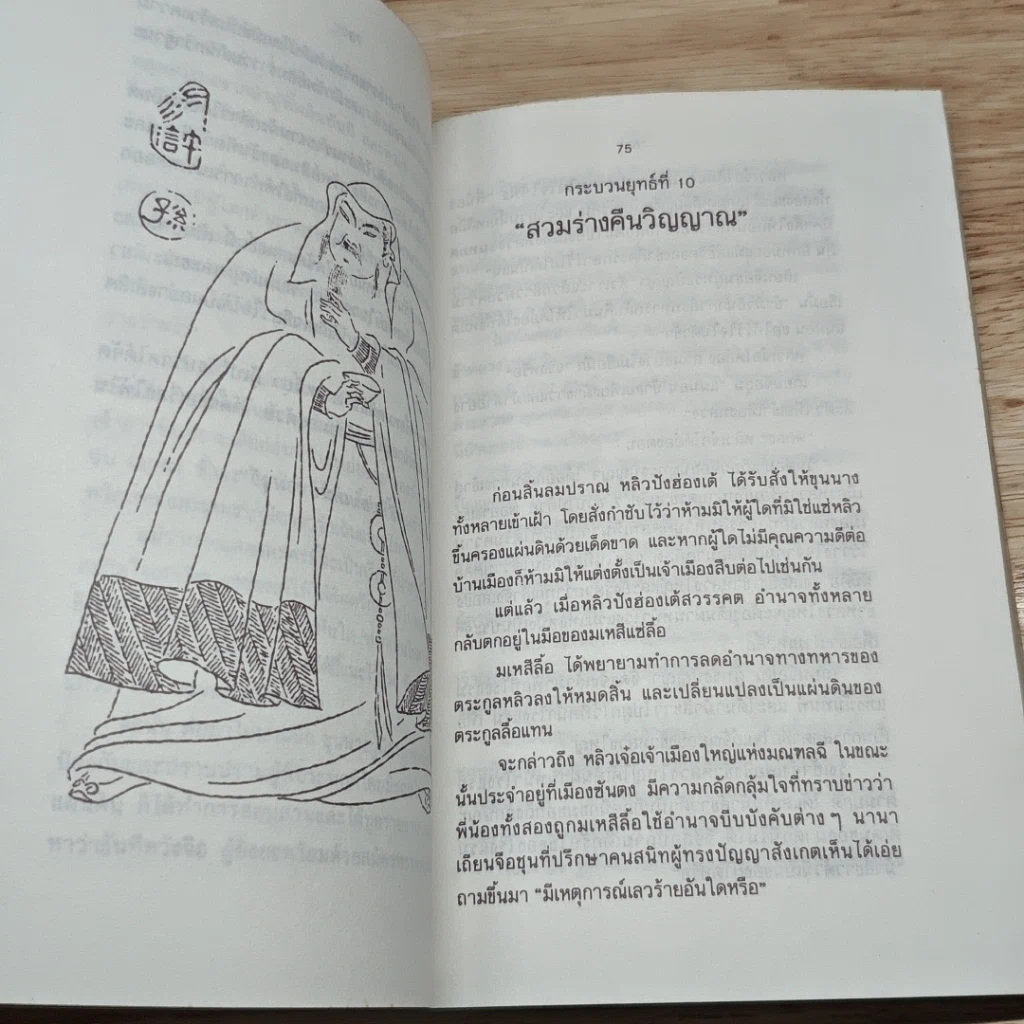 75
กระบวนยุทธ์ที่ 10
“สวมร่างคืนวิญญาณ”
ก่อนสิ้นลมปราณ หลิวปังฮ่องเต้ ได้รับสั่งให้ขุนนาง
ทั้งหลายเข้าเฝ้า โดยสั่งกำชับไว้ว่าห้ามมิให้ผู้ใดที่มิใช่แซ่หลิว
ขึ้นครองแผ่นดินด้วยเด็ดขาด และหากผู้ใดไม่มีคุณความดีต่อ
บ้านเมืองก็ห้ามมิให้แต่งตั้งเป็นเจ้าเมืองสืบต่อไปเช่นกัน
แต่แล้ว เมื่อหลิวปังฮ่องเต้สวรรคต อำนาจทั้งหลาย
กลับตกอยู่ในมือของมเหสีแซ่ลื้อ
มเหสีลื้อ ได้พยายามทำการลดอำนาจทางทหารของ
ตระกูลหลิวลงให้หมดสิ้น และเปลี่ยนแปลงเป็นแผ่นดินของ
ต่ระกูลลื้อแทน
จะกล่าวถึง หลิวเจ๋อเจ้าเมืองใหญ่แห่งมณฑลฉี ในขณะ
นั้นประจำอยู่ที่เมืองซันตง มีความกลัดกลุ้มใจที่ทราบข่าวว่า
พี่น้องทั้งสองถูกมเหสีลื้อใช้อำนาจบีบบังคับต่าง ๆ นานา
เถียนจือชุนที่ปรึกษาคนสนิทผู้ทรงปัญญาสังเกตเห็นได้เอ่ย
ถามขึ้นมา “มีเหตุการณ์เลวร้ายอันใดหรือ”